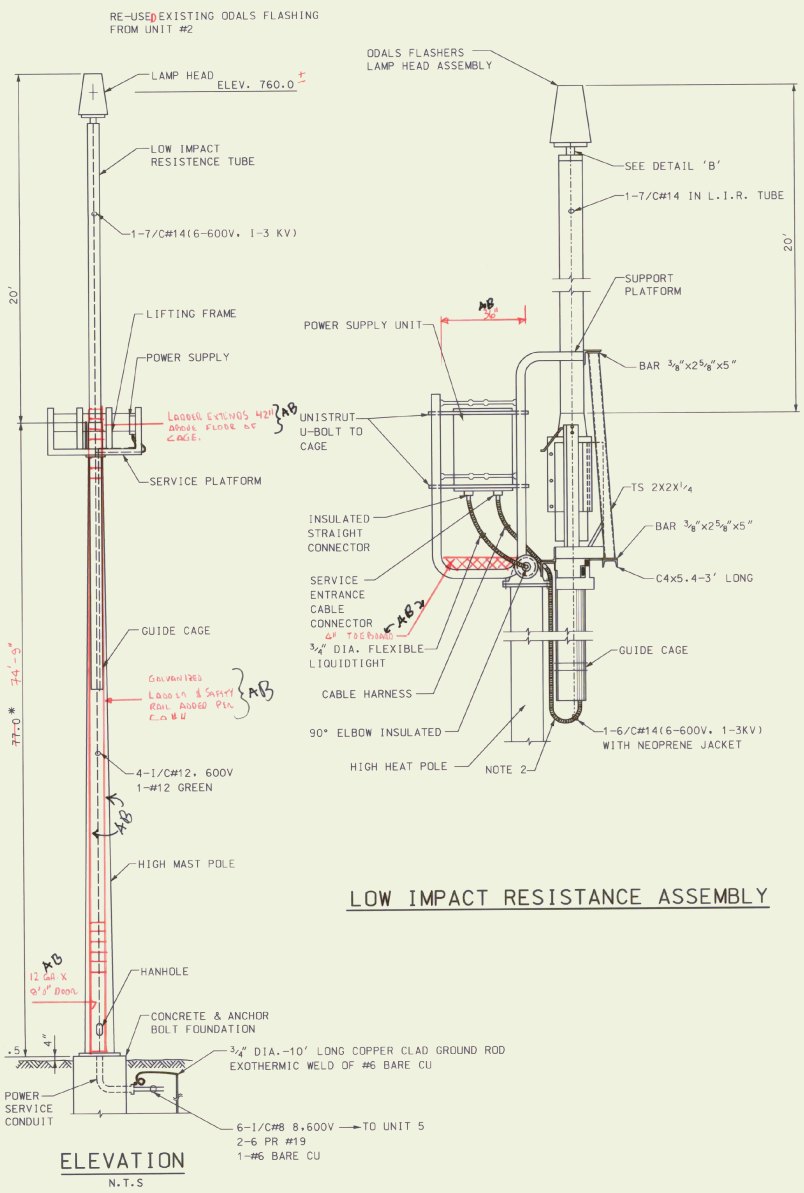 RE-USED EXISTING ODALS FLASHING
FROM UNIT #2
LAMP HEAD
ELEV. 760.0 ±
LOW IMPACT
RESISTENCE TUBE
1-7/C#14(6-600V, 1-3 KV)
20'
LIFTING FRAME
POWER SUPPLY
LADDER EXTENDS 42"
ABOVE FLOOR OF
CAGE.
AB
SERVICE PLATFORM
GUIDE CAGE
GALVANIZED
LADDER & SAFETY
RAIL ADDED PER
AB
77.0 * 74'-9"
4-1/C#12, 600V
1-#12 GREEN
AB
HIGH MAST POLE
AB
12 GA. X
DOOR
HANHOLE
CONCRETE & ANCHOR
BOLT FOUNDATION
.5
4"
3/4" DIA.-10' LONG COPPER CLAD GROUND ROD
EXOTHERMIC WELD OF #6 BARE CU
POWER
SERVICE
CONDUIT
6-1/C#8 8,600V TO UNIT 5
2-6 PR #19
1-#6 BARE CU
ELEVATION
N.T.S
ODALS FLASHERS
LAMP HEAD ASSEMBLY
SEE DETAIL 'B'
1-7/C#14 IN L.I.R. TUBE
20'
SUPPORT
PLATFORM
AB
36"
POWER SUPPLY UNIT
BAR 3/8"x2 5/8"x5"
UNISTRUT
U-BOLT TO
CAGE
TS 2X2X1/4
INSULATED
STRAIGHT
CONNECTOR
BAR 3/8"x2 5/8"x5"
SERVICE
ENTRANCE
CABLE
CONNECTOR
C4x5.4-3' LONG
AB
TOEBOARD
3/4" DIA. FLEXIBLE
LIQUIDTIGHT
GUIDE CAGE
CABLE HARNESS
90° ELBOW INSULATED
1-6/C#14(6-600V, 1-3KV)
WITH NEOPRENE JACKET
HIGH HEAT POLE
NOTE 2
LOW IMPACT RESISTANCE ASSEMBLY